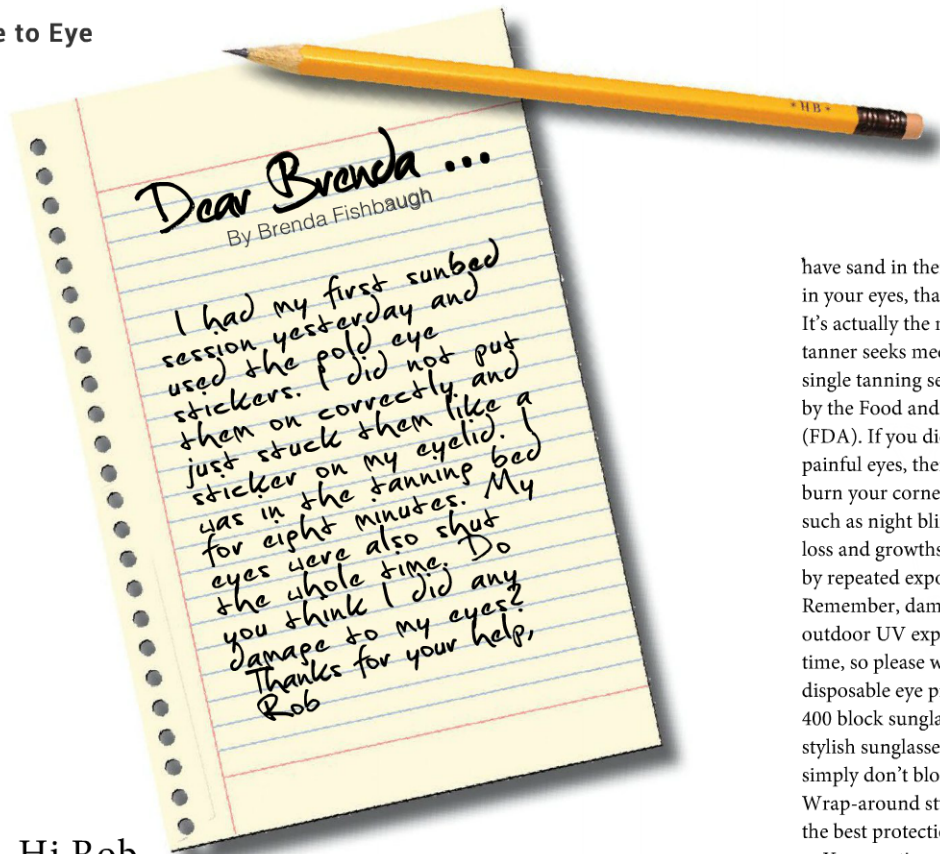 e to Eye
*HB*
Dear Brenda ...
By Brenda Fishbaugh
I had my first sunbed
session yesterday and
used the gold eye
stickers. I did not put
them on correctly and
just stuck them like a
sticker on my eyelid. I
was in the tanning bed
for eight minutes. My
eyes were also shut
the whole time. Do
you think I did any
damage to my eyes?
Thanks for your help,
Rob
Hi Rob
have sand in the
in your eyes, tha
It's actually the
tanner seeks me
single tanning se
by the Food and
(FDA). If you di
painful eyes, the
burn your corne
such as night bli
loss and growths
by repeated expo
Remember, dam
outdoor UV exp
time, so please w
disposable eye p
400 block sungla
stylish sunglasse
simply don't blo
Wrap-around st
the best protecti